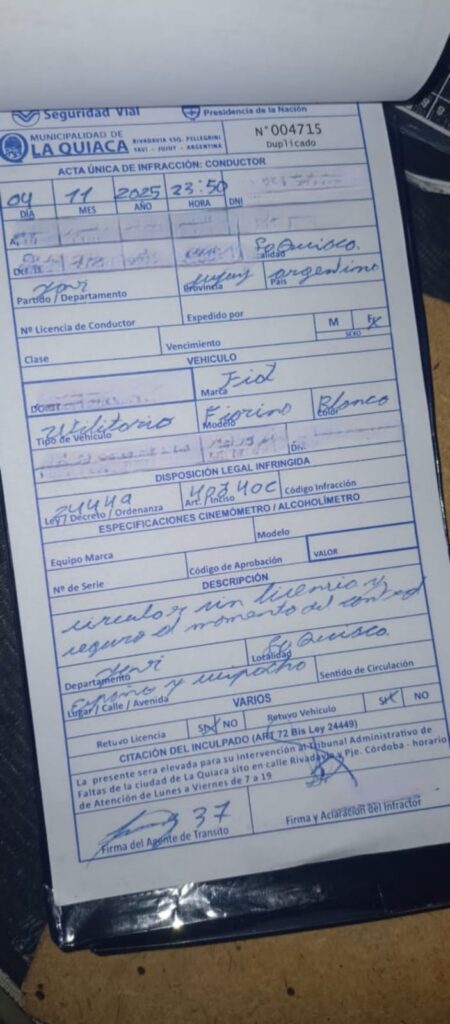 Seguridad Vial
Presidencia de la Nación
MUNICIPALIDAD DE
LA QUIACA
RIVADAVIA ESQ. PELLEGRINI
YAVI - JUJUY - ARGENTINA
N°004715
Duplicado
ACTA ÚNICA DE INFRACCIÓN: CONDUCTOR
04 11 2025 23:50
DÍA MES AÑO HORA DNI
La Quiaca.
Yavi Jujuy argentina
Partido / Departamento Provincia País
Nº Licencia de Conductor Expedido por
M F X
SEXO
Clase Vencimiento
VEHICULO
Fiat
Marca
Utilitario Fiorino Blanco
Tipo de Vehículo Modelo Color
DISPOSICIÓN LEGAL INFRINGIDA
24449
Ley / Decreto / Ordenanza Art. / Inciso Código Infracción
ESPECIFICACIONES CINEMÓMETRO / ALCOHOLÍMETRO
Equipo Marca Modelo
Nº de Serie Código de Aprobación VALOR
DESCRIPCIÓN
sin licencia y
seguro al momento del control
Yavi La Quiaca.
Departamento Localidad
España y
Lugar / Calle / Avenida Sentido de Circulación
VARIOS
Retuvo Licencia SI X NO Retuvo Vehiculo SI X NO
CITACIÓN DEL INCULPADO (ART 72 Bis Ley 24449)
La presente sera elevada para su intervención al Tribunal Administrativo de
Faltas de la ciudad de La Quiaca sito en calle Rivadavia y Pje. Córdoba - horario
de Atención de Lunes a Viernes de 7 a 19
37
Firma del Agente de Tránsito Firma y Aclaración del Infractor